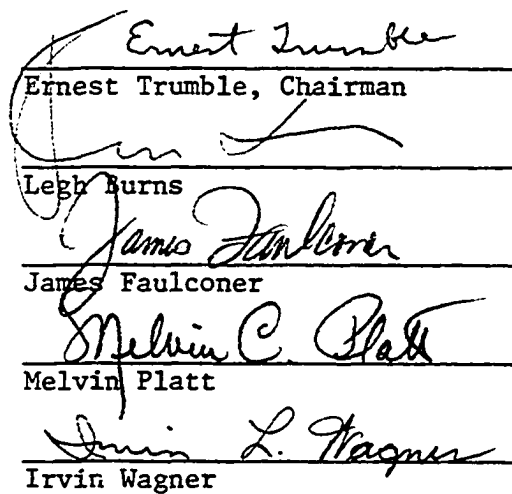 Ernest Trumble
Ernest Trumble, Chairman
Legh Burns
James Faulconer
James Faulconer
Melvin C. Platt
Melvin Platt
Irvin L. Wagner
Irvin Wagner